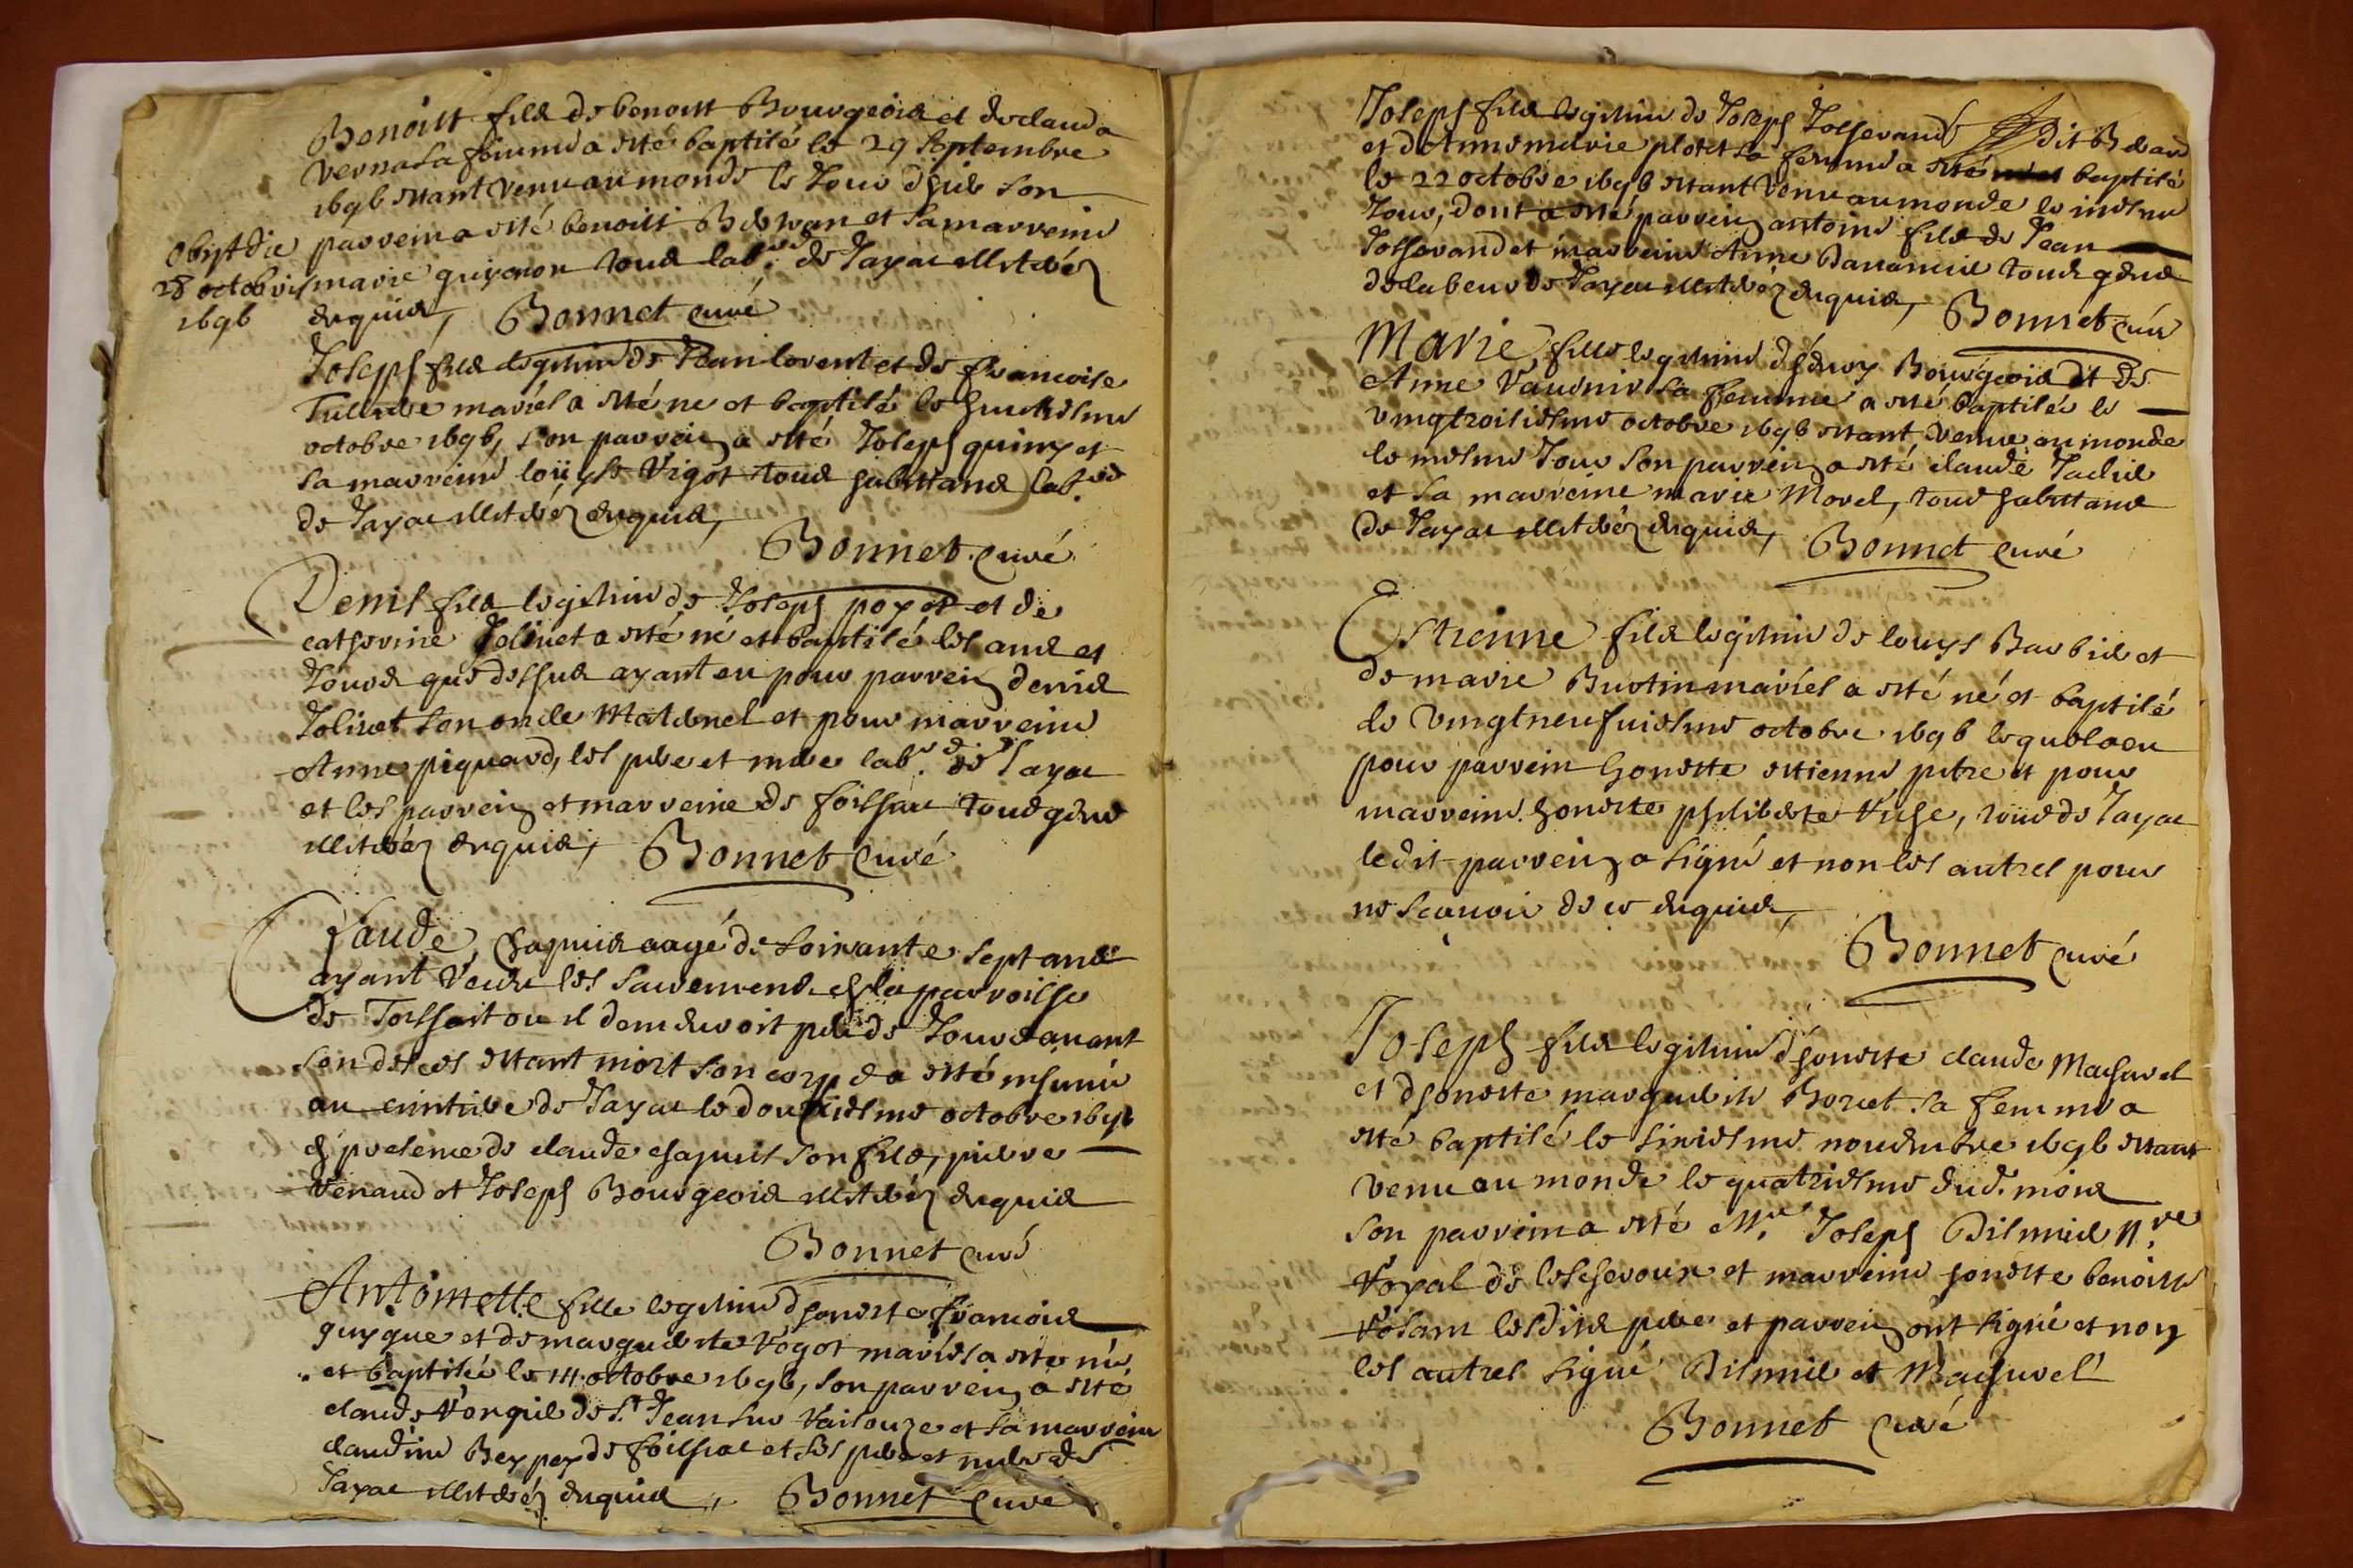 Benoist fils de benoist Bourgeois et de clauda
Verna sa femme a esté baptisé le 29 Septembre
1696 estant venu au monde le Jour d'hier son
parrein a esté benoist et sa marreine
marie guigonon tous lab.rs de Jayac illiterez
enquis, Bonnet curé
obijt die
28 octobris
1696
Joseph fils legitime de Jean lorent et de francoise
mariés a esté né et baptisé le huictiesme
octobre 1696, son parrein a esté Joseph guiny et
sa marreine loüyse Vigot tous habittans lab.rs
de Jayac illiterez enquis,
Bonnet curé
Denis fils legitime de Joseph poget et de
catherine Jolivet a esté né et baptisé les ans et
Jours que dessus ayant eu pour parrein denis
Jolivet son oncle Maternel et pour marreine
Anne piquard, les pere et mere lab.rs de Jayac
et les parrein et marreine de foissiac tous gens
illiterez enquis, Bonnet curé
Claude Chapuis aagé de soixante sept ans
ayant receu les sacremens en la parroisse
de foissiat ou il demeuroit peu de Jours avant
son deces estant mort son corps a esté inhumé
au cimtiere de Jayac le douziesme octobre 1696
en presence de claude chapuis son fils, pierre
Venaud et Joseph Bourgeois illiterez enquis
Bonnet curé
Antoinette fille legitime d'honeste francois
guygue et de marguerite Vogot mariés a esté née
et baptisée le 14 octobre 1696, son parrein a esté
claude de S.t Jean sur Raisouze et sa marreine
claudine Beypey de foissiac et les pere et mere de
Jayac illiterez enquis, Bonnet curé
Joseph fils legitime de Joseph Josserand dit
et d'Annemarie plotet sa femme a esté baptisé
le 22 octobre 1696 estant venu au monde le mesme
Jour, dont a esté parrein antoine fils de Jean
Josserand et marreine Anne tous gens
de labeur de Jayac illiterez enquis, Bonnet curé
Marie, fille legitime d'hénry Bourgeois et de
Anne Vausnir sa femme a esté baptisée le
vingtroisiesme octobre 1696 estant venue au monde
le mesme Jour son parrein a esté claude
et sa marreine marie Morel, tous habittans
de Jayac illiterez enquis, Bonnet curé
Estienne fils legitime de louys Barbier et
de marie Burtin mariés a esté né et baptisé
le vingtneufuiesme octobre 1696 lequel a eu
pour parrein honeste estienne pitre et pour
marreine honeste philiberte Vuche, tous de Jayac
ledit parrein a signé et non les autres pour
ne scauoir de ce enquis,
Bonnet curé
Joseph fils legitime d'honeste claude Machurel
et d'honeste marguerite Borcet sa femme a
esté baptisé le sixiesme nouembre 1696 estant
venu au monde le quatriesme dud. mois
son parrein a esté M.re Joseph Dismier n.re
Royal de lescheroux et marreine honeste benoiste
Rosam lesdits pere et parrein ont signé et non
les autres signé Dismier et Machurel
Bonnet curé